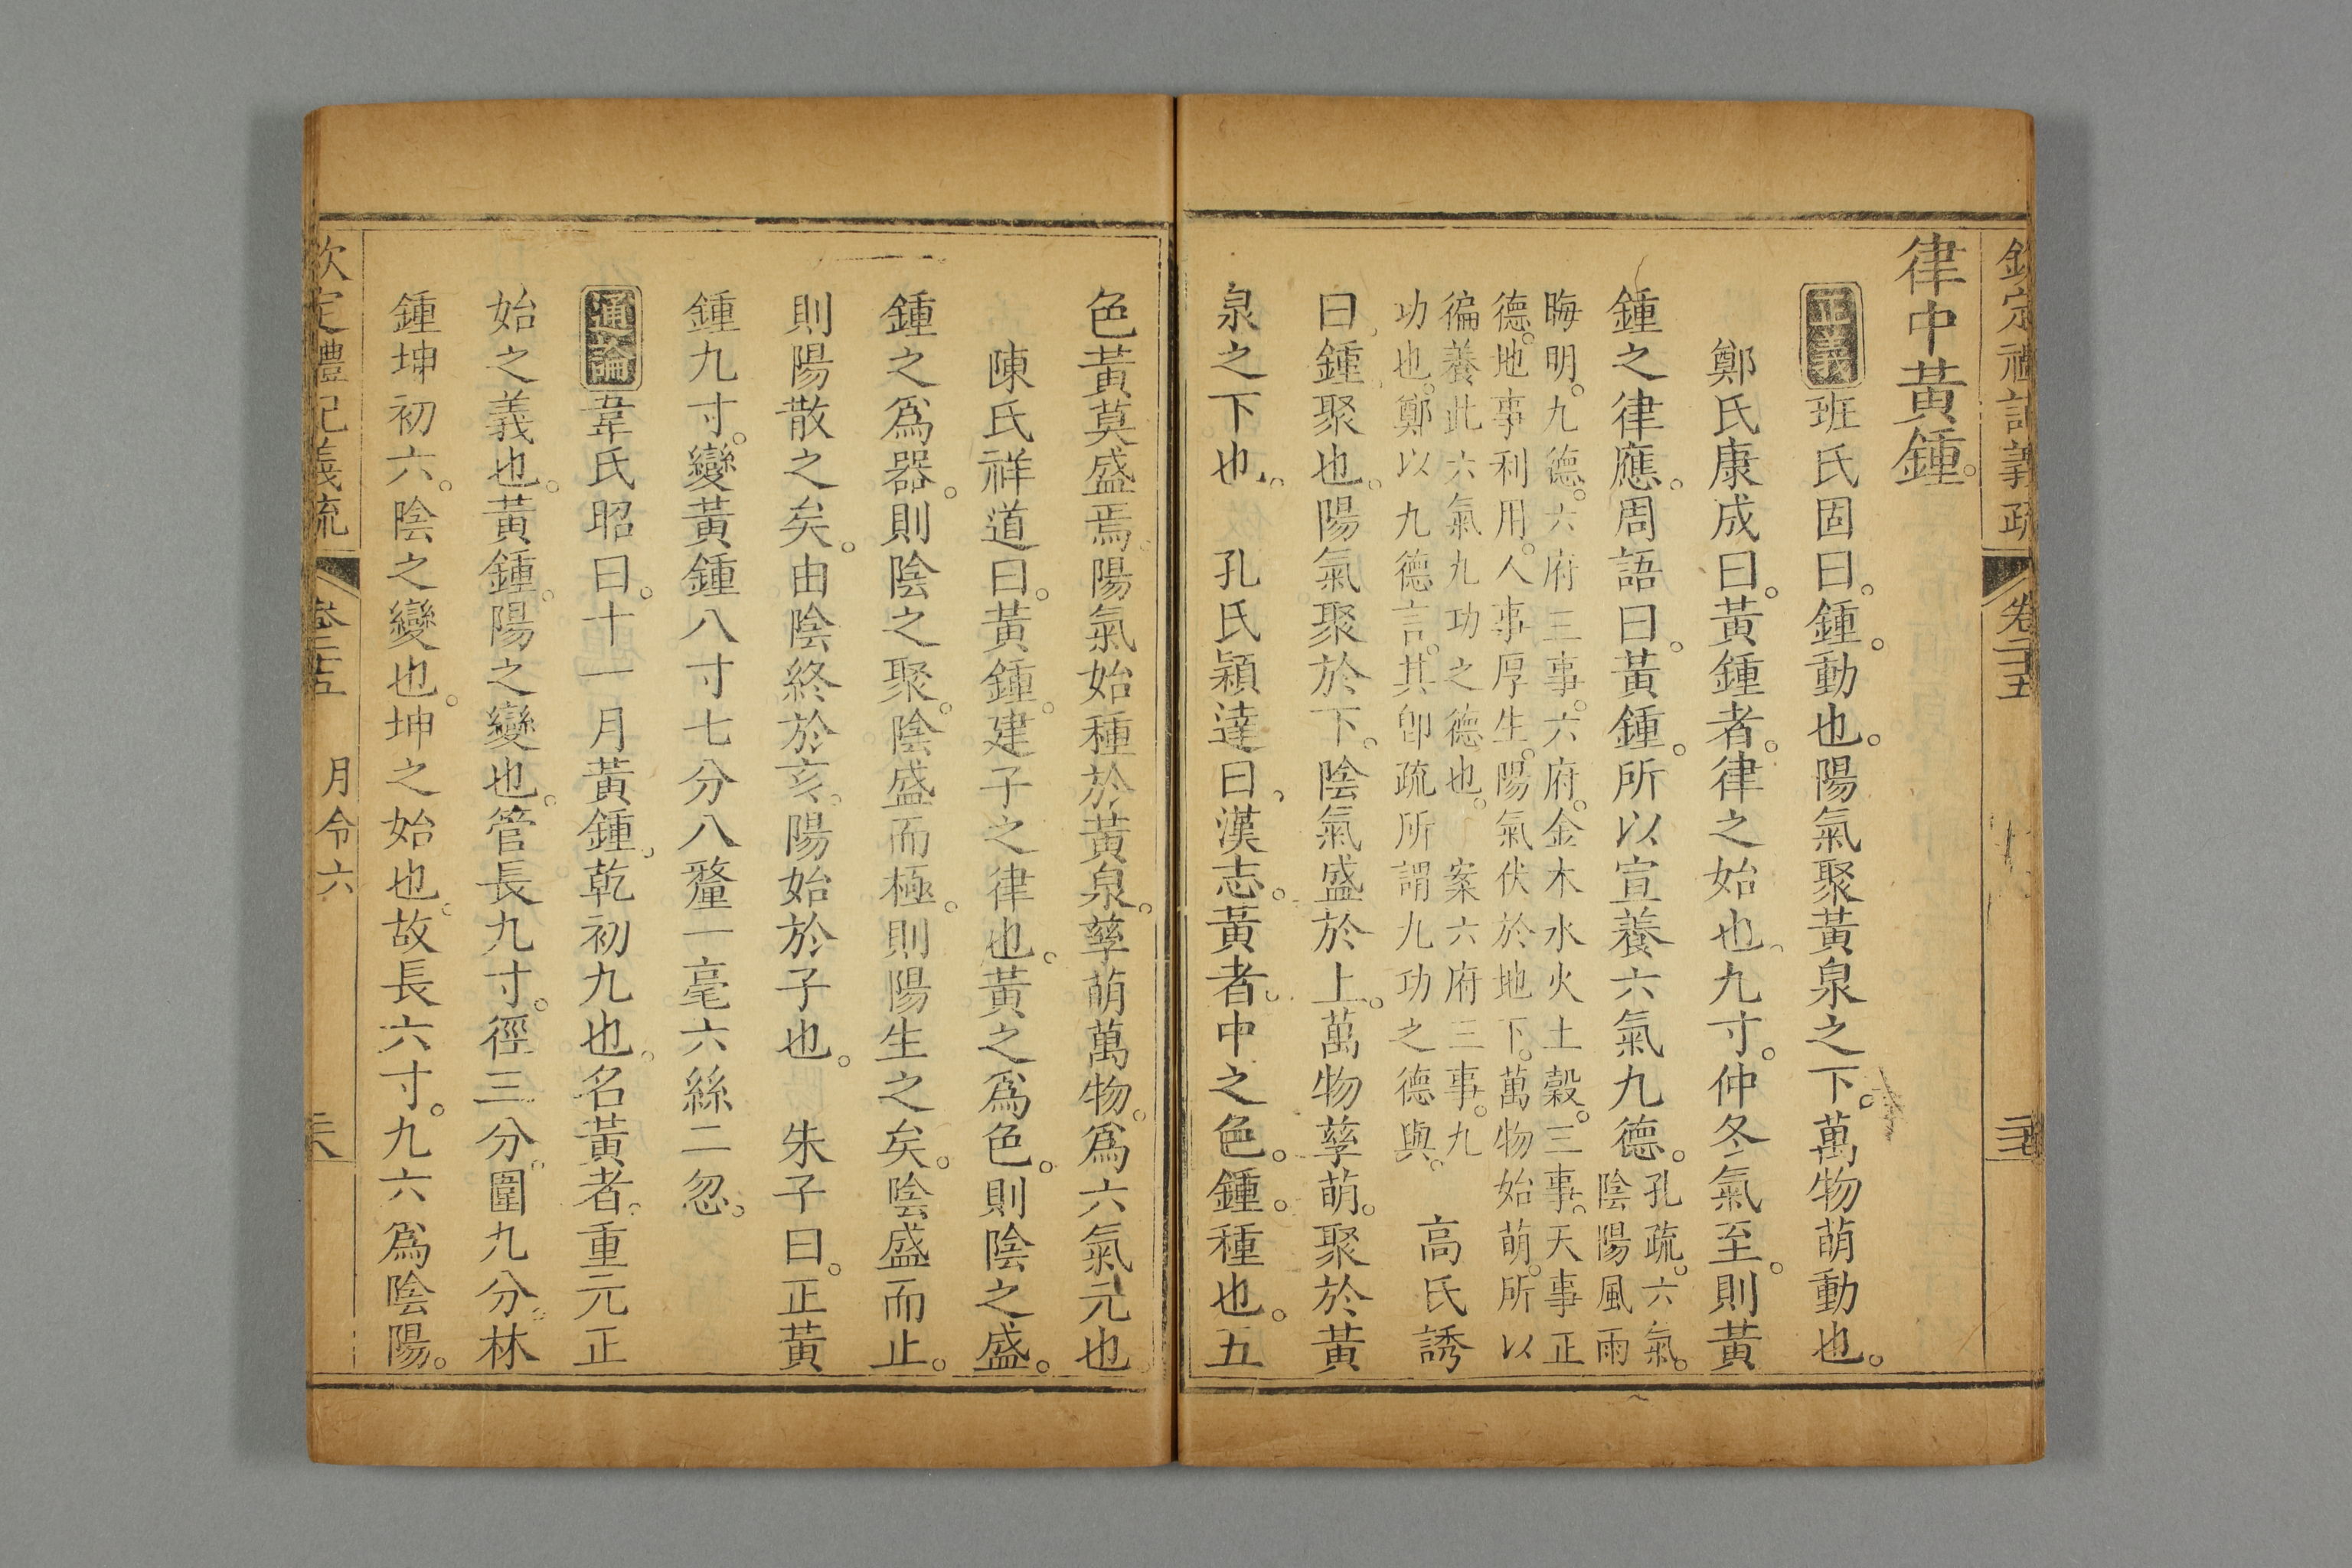 欽定禮記義疏 卷二十五
律中黃鍾。
正義 班氏固曰。鍾。動也。陽氣聚黃泉之下。萬物萌動也。
鄭氏康成曰。黃鍾者。律之始也。九寸。仲冬氣至。則黃
鍾之律應。周語曰。黃鍾。所以宣養六氣九德。孔疏。六氣。
陰陽風雨
晦明。九德。六府三事。六府。金木水火土穀。三事。天事正
德。地事利用。人事厚生。陽氣伏於地下。萬物始萌。所以
徧養此六氣九功之德也。 案六府三事。九
功也。鄭以九德言。其卽疏所謂九功之德與。 高氏誘
曰。鍾聚也。陽氣聚於下。陰氣盛於上。萬物孳萌。聚於黃
泉之下也。 孔氏穎達曰。漢志。黃者。中之色。鍾。種也。五
色黃莫盛焉。陽氣始種於黃泉。孳萌萬物。爲六氣元也
陳氏祥道曰。黃鍾。建子之律也。黃之爲色。則陰之盛。
鍾之爲器。則陰之聚。陰盛而極。則陽生之矣。陰盛而止。
則陽散之矣。由陰終於亥。陽始於子也。 朱子曰。正黃
鍾九寸。變黃鍾八寸七分八釐一毫六絲二忽。
通論 韋氏昭曰。十一月黃鍾。乾初九也。名黃者。重元正
始之義也。黃鍾。陽之變也。管長九寸。徑三分。圍九分。林
鍾坤初六。陰之變也。坤之始也。故長六寸。九六爲陰陽。
欽定禮記義疏 卷二十五 月令六